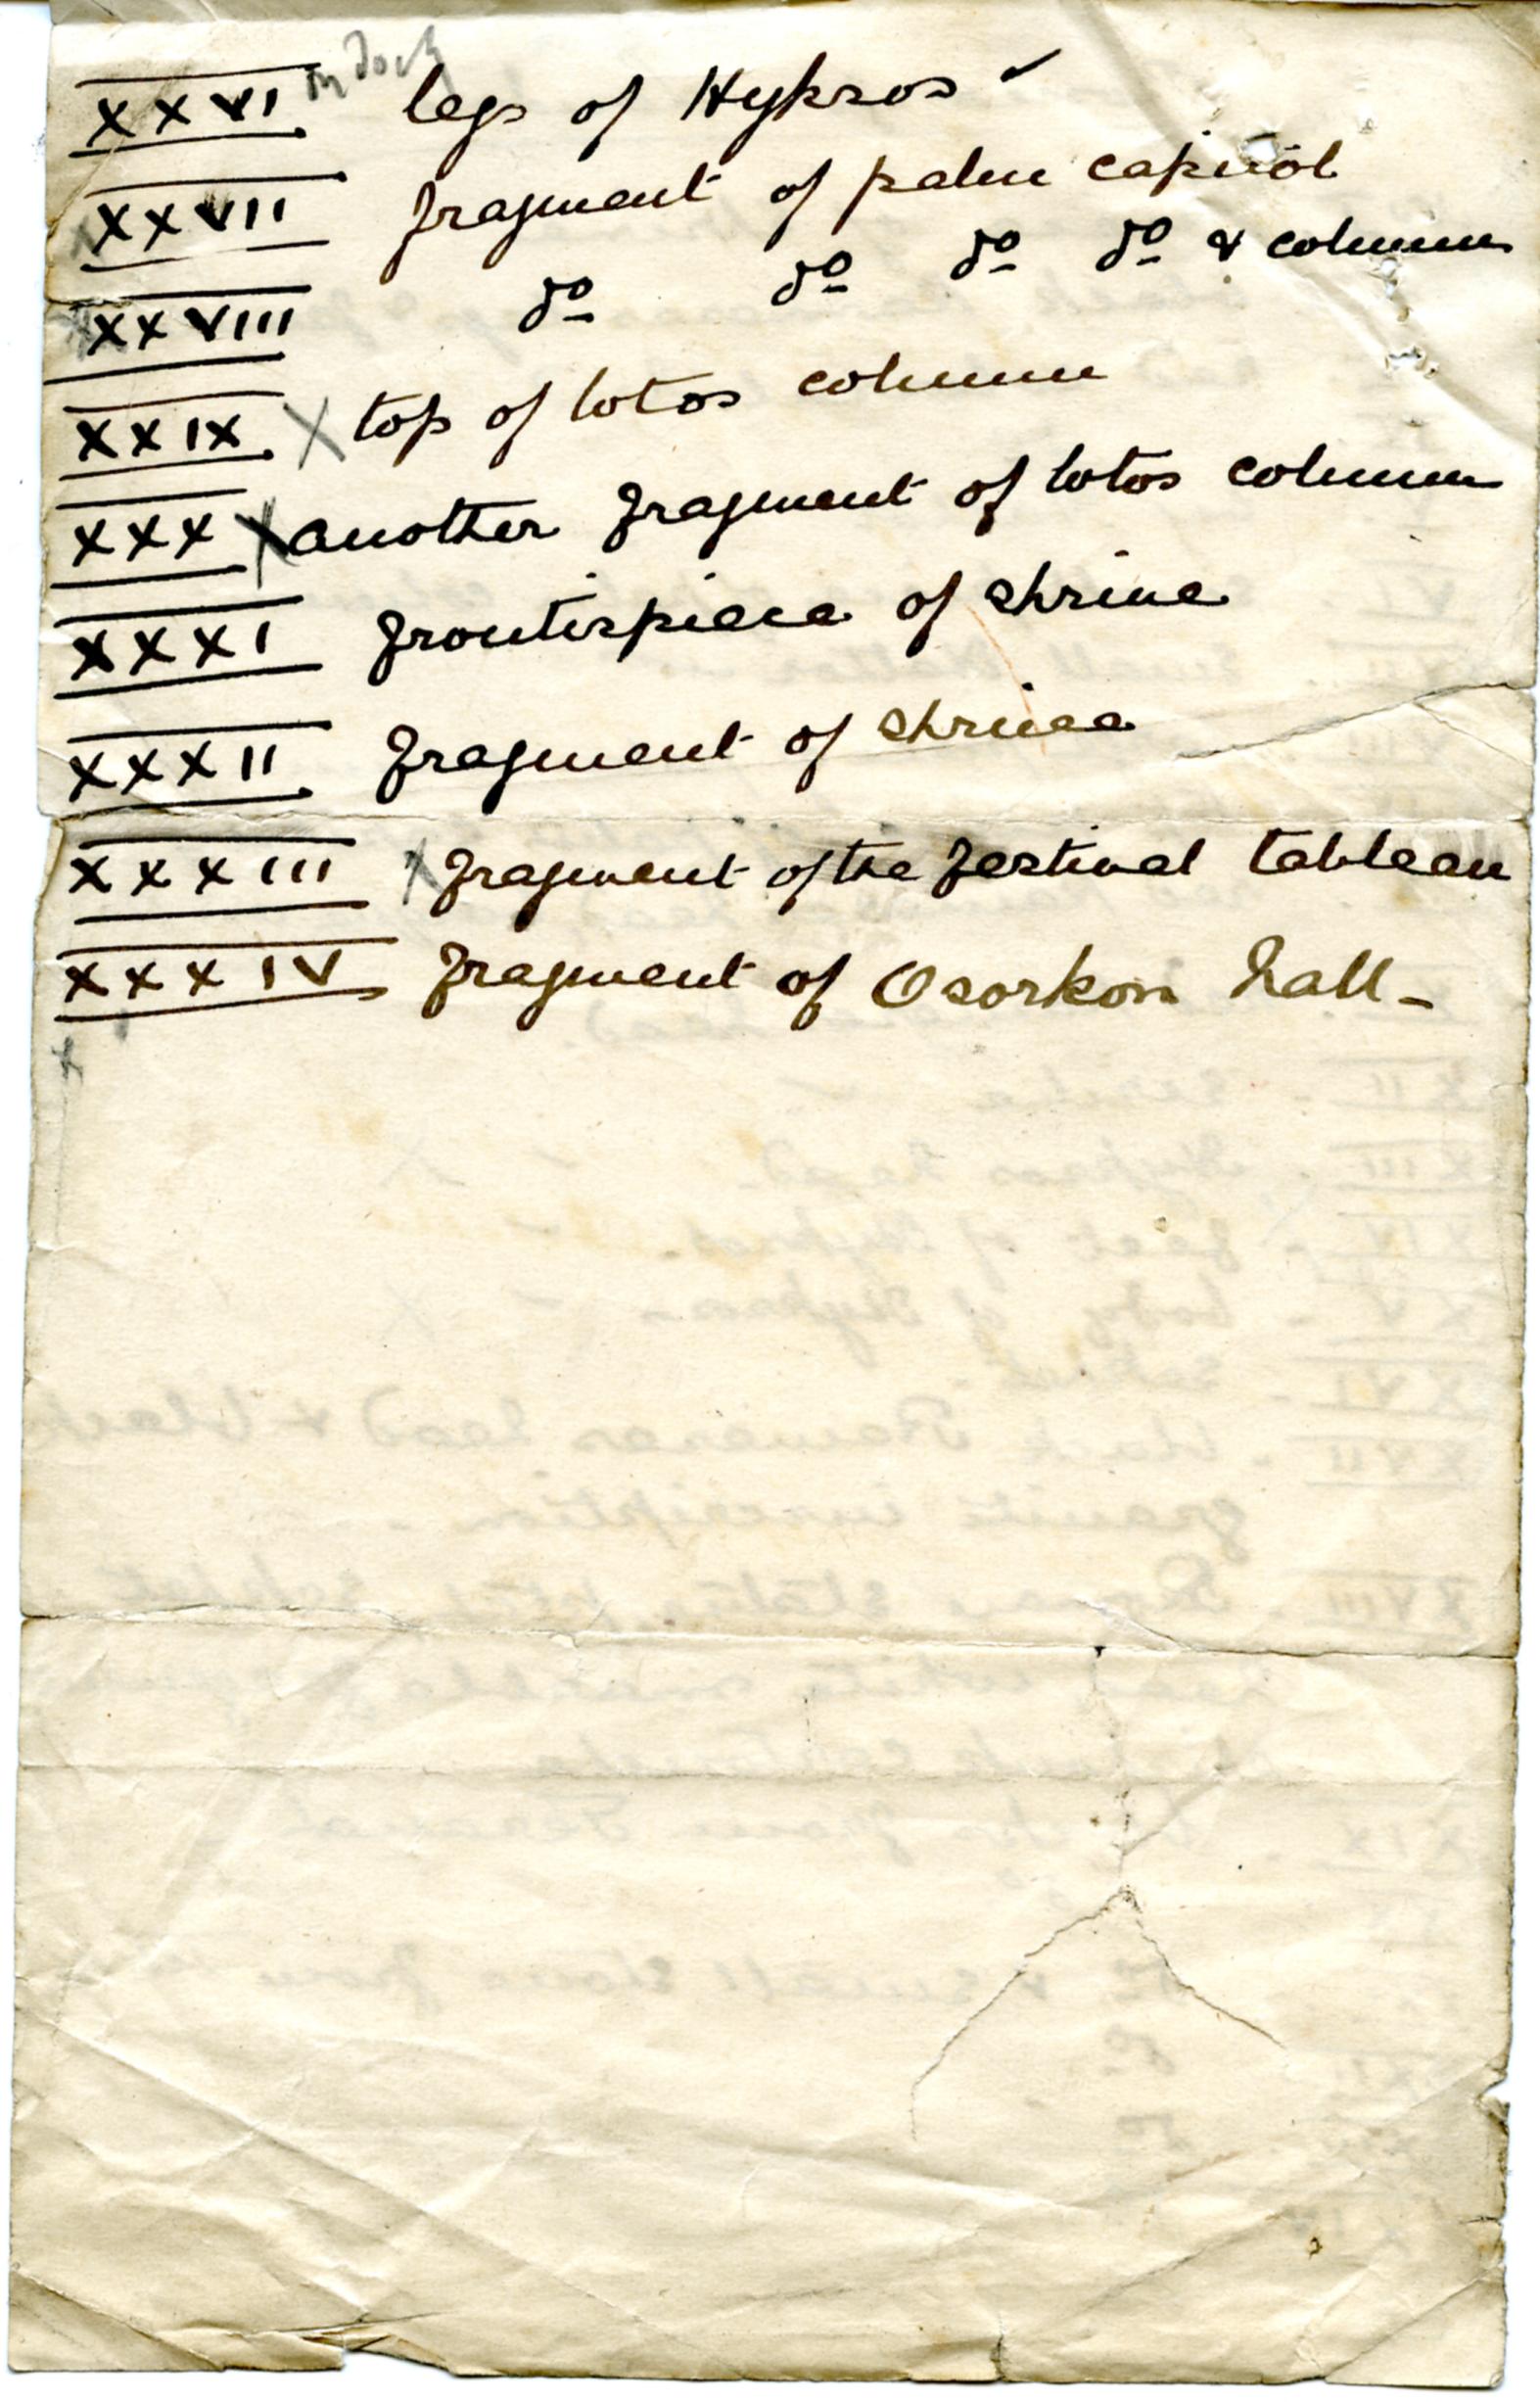 in dock
XXVI legs of Hyksos ✓
XXVII fragment of palm capitol
XXVIII do do do do & column
XXIX X top of lotos column
XXX X another fragment of lotos column
XXXI frontispiece of shrine
XXXII fragment of shrine
XXXIII X fragment of the festival tableau
XXXIV fragment of Osorkon hall -
x